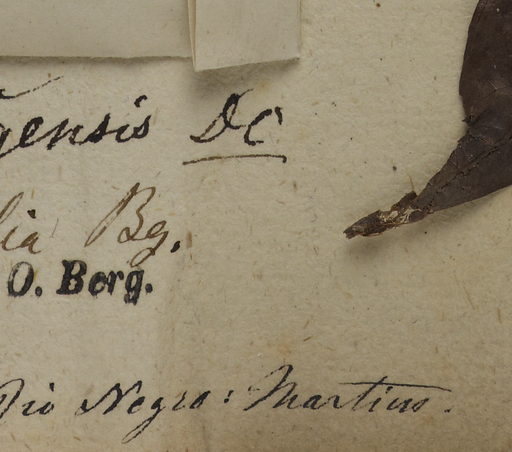 gensis DC
lia Bg.
O. Berg.
Rio Negro: Martius.